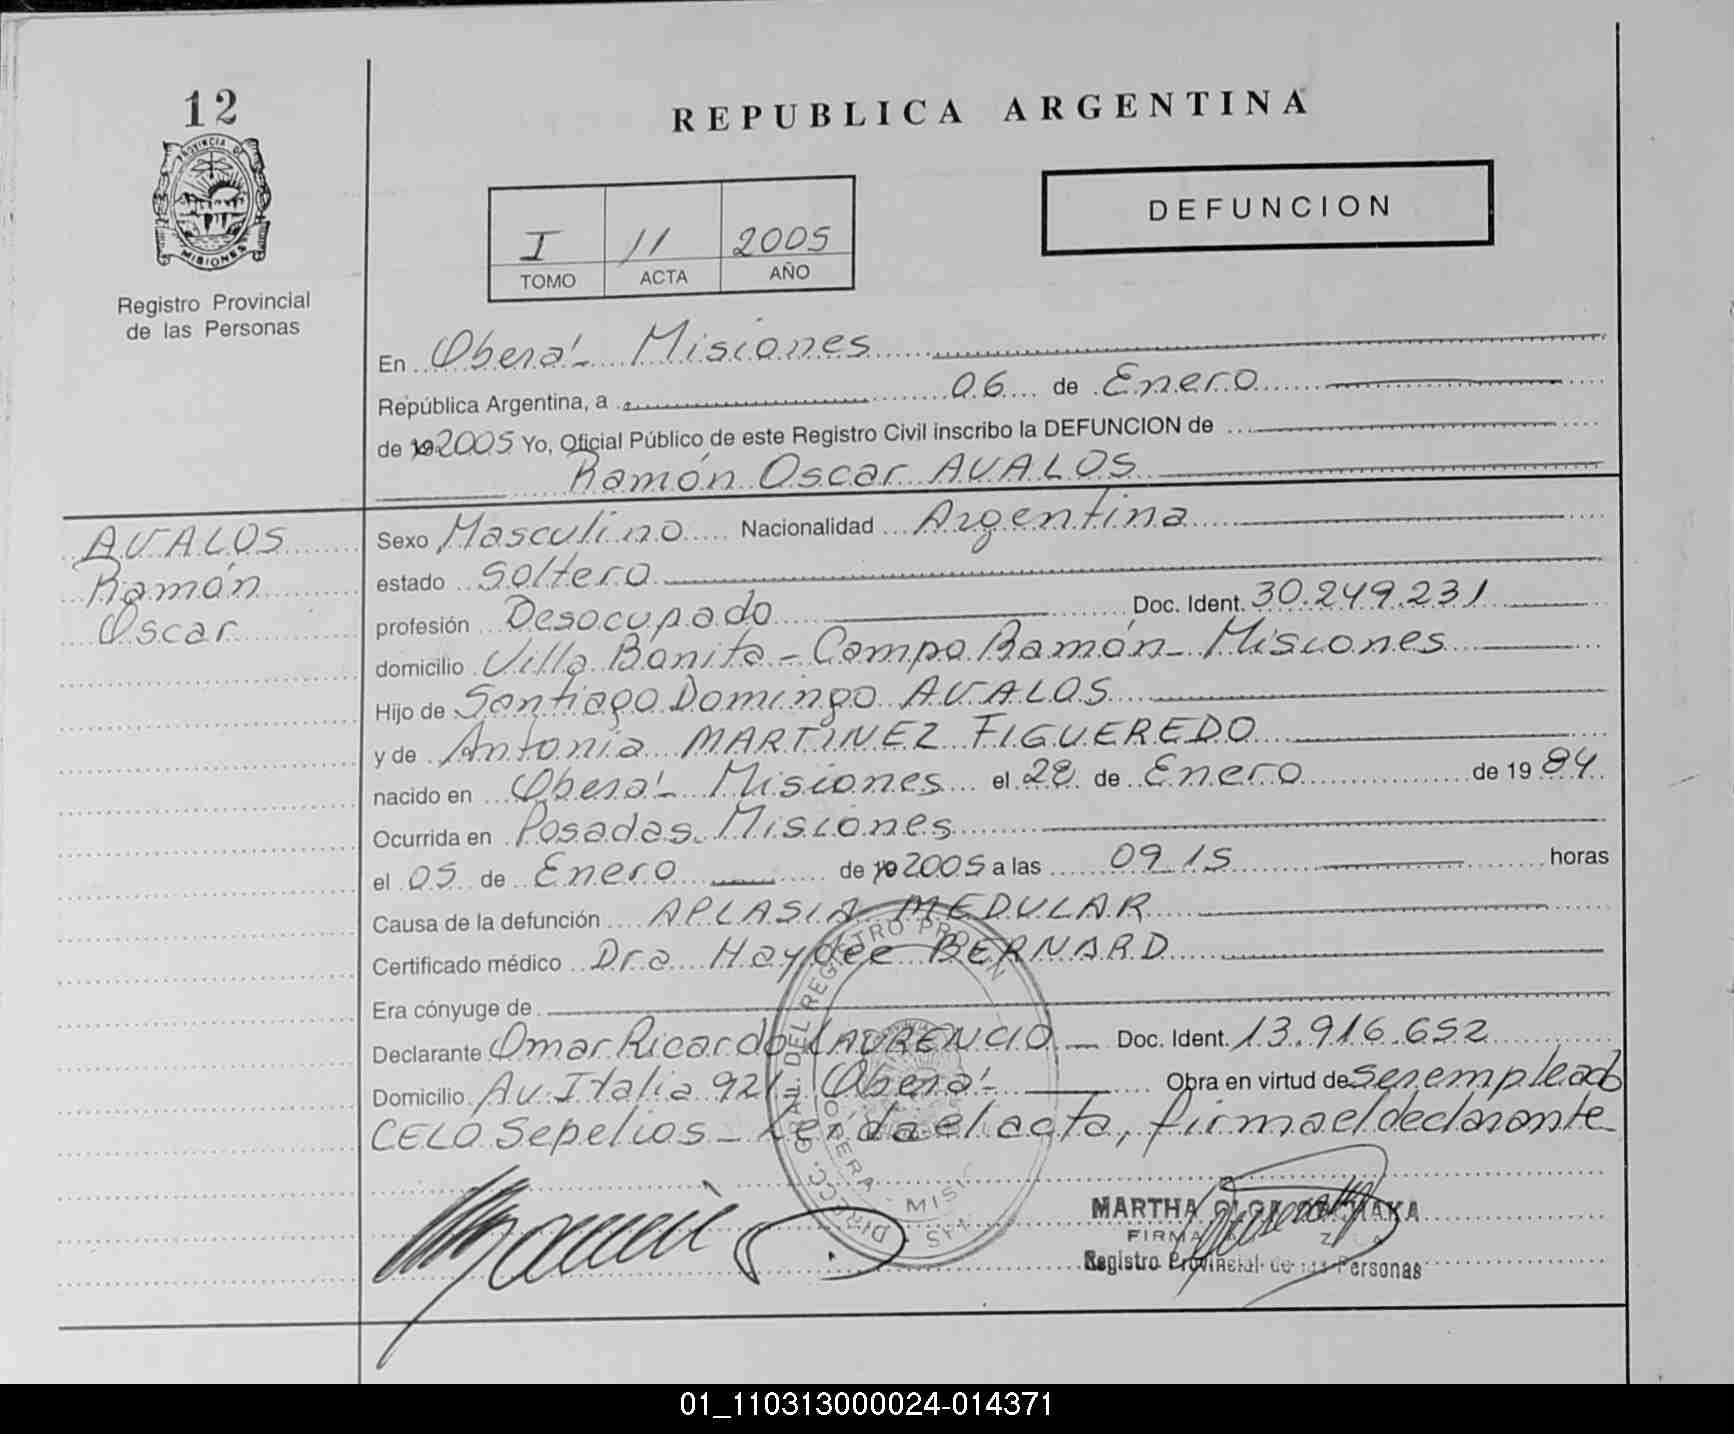 12
PROVINCIA DE
MISIONES
Registro Provincial
de las Personas
REPUBLICA ARGENTINA
I 11 2005
TOMO ACTA AÑO
DEFUNCION
En Oberá - Misiones
República Argentina, a 06 de Enero
de 19 2005 Yo, Oficial Público de este Registro Civil inscribo la DEFUNCION de
Ramón Oscar AVALOS
AVALOS
Ramón
Oscar
Sexo Masculino Nacionalidad Argentina
estado Soltero
profesión Desocupado Doc. Ident. 30.249.231
domicilio Villa Bonita - Campo Ramón - Misiones
Hijo de Santiago Domingo AVALOS
y de Antonia MARTINEZ FIGUEREDO
nacido en Oberá - Misiones el 28 de Enero de 19 84
Ocurrida en Posadas Misiones
el 05 de Enero de 19 2005 a las 09 15 horas
Causa de la defunción APLASIA MEDULAR
Certificado médico Dra Haydee BERNARD
Era cónyuge de
Declarante Omar Ricardo LAURENCIO - Doc. Ident. 13.916.652
Domicilio Av. Italia 921 - Oberá - Obra en virtud de ser empleado
CELO Sepelios - Leída el acta, firma el declarante
DIRECC. GRAL. DEL REGISTRO PROVIN
OBERA - MISI
MARTHA OLGA
FIRMA
Registro Provincial de las Personas
01_110313000024-014371